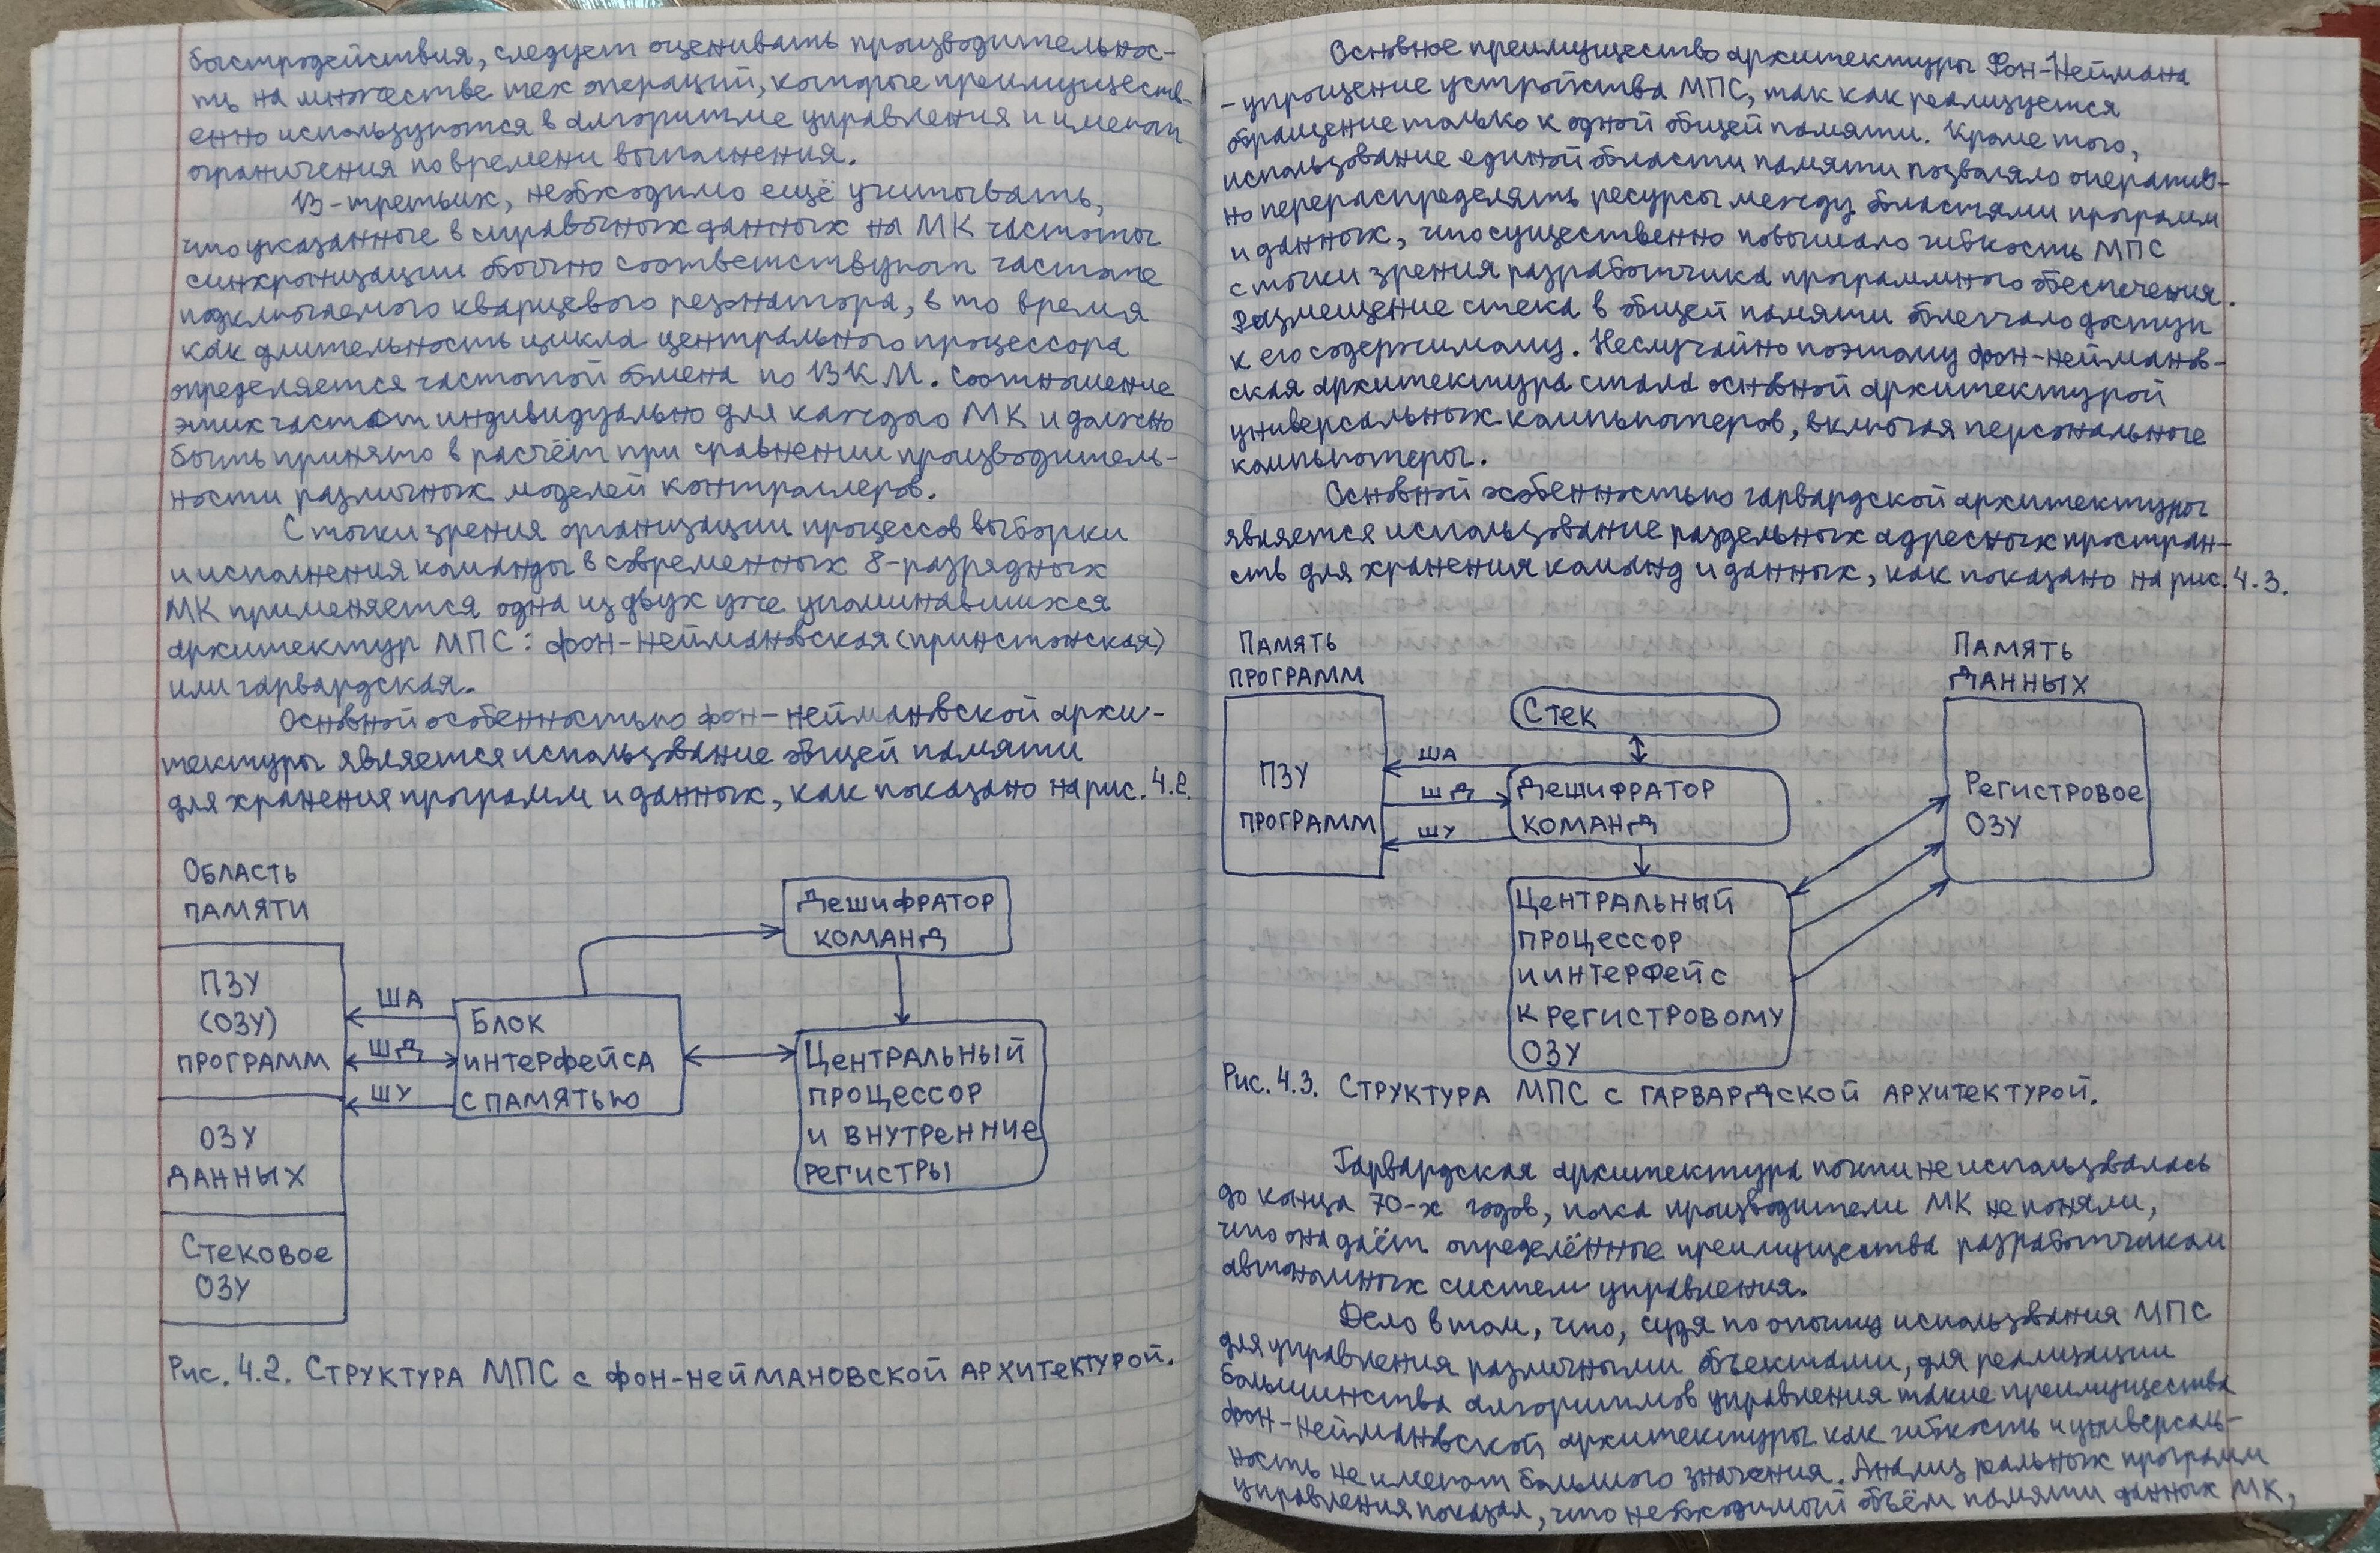 быстродействия, следует оценивать производительнос-
ть на множестве тех операций, которые преимуществ-
енно используются в алгоритме управления и имеют
ограничения по времени выполнения.
В-третьих, необходимо ещё учитывать,
что указанные в справочных данных на МК частоты
синхронизации обычно соответствуют частоте
подключаемого кварцевого резонатора, в то время
как длительность цикла центрального процессора
определяется частотой обмена по ВКМ. Соотношение
этих частот индивидуально для каждого МК и должно
быть принято в расчёт при сравнении производитель-
ности различных моделей контроллеров.
С точки зрения организации процессов выборки
и исполнения команды в современных 8-разрядных
МК применяется одна из двух уже упоминавшихся
архитектур МПС: фон-неймановская (принстонская)
или гарвардская.
Основной особенностью фон-неймановской архи-
тектуры является использование общей памяти
для хранения программ и данных, как показано на рис. 4.2.
Область
памяти
ПЗУ
(ОЗУ)
программ
ОЗУ
данных
Стековое
ОЗУ
ША
ШД
ШУ
Блок
интерфейса
с памятью
Дешифратор
команд
Центральный
процессор
и внутренние
регистры
Рис. 4.2. Структура МПС с фон-неймановской архитектурой.
Основное преимущество архитектуры Фон-Неймана
- упрощение устройства МПС, так как реализуется
обращение только к одной общей памяти. Кроме того,
использование единой области памяти позволяло оператив-
но перераспределять ресурсы между областями программ
и данных, что существенно повышало гибкость МПС
с точки зрения разработчика программного обеспечения.
Размещение стека в общей памяти облегчало доступ
к его содержимому. Неслучайно поэтому фон-нейманов-
ская архитектура стала основной архитектурой
универсальных компьютеров, включая персональные
компьютеры.
Основной особенностью гарвардской архитектуры
является использование раздельных адресных простран-
ств для хранения команд и данных, как показано на рис. 4.3.
Память
программ
ПЗУ
программ
ША
ШД
ШУ
Стек
Дешифратор
команд
Центральный
процессор
и интерфейс
к регистровому
ОЗУ
Память
данных
Регистровое
ОЗУ
Рис. 4.3. Структура МПС с гарвардской архитектурой.
Гарвардская архитектура почти не использовалась
до конца 70-х годов, пока производители МК не поняли,
что она даёт определённые преимущества разработчикам
автономных систем управления.
Дело в том, что, судя по опыту использования МПС
для управления различными объектами, для реализации
большинства алгоритмов управления такие преимущества
фон-неймановской архитектуры как гибкость и универсаль-
ность не имеют большого значения. Анализ реальных программ
управления показал, что необходимый объём памяти данных МК,